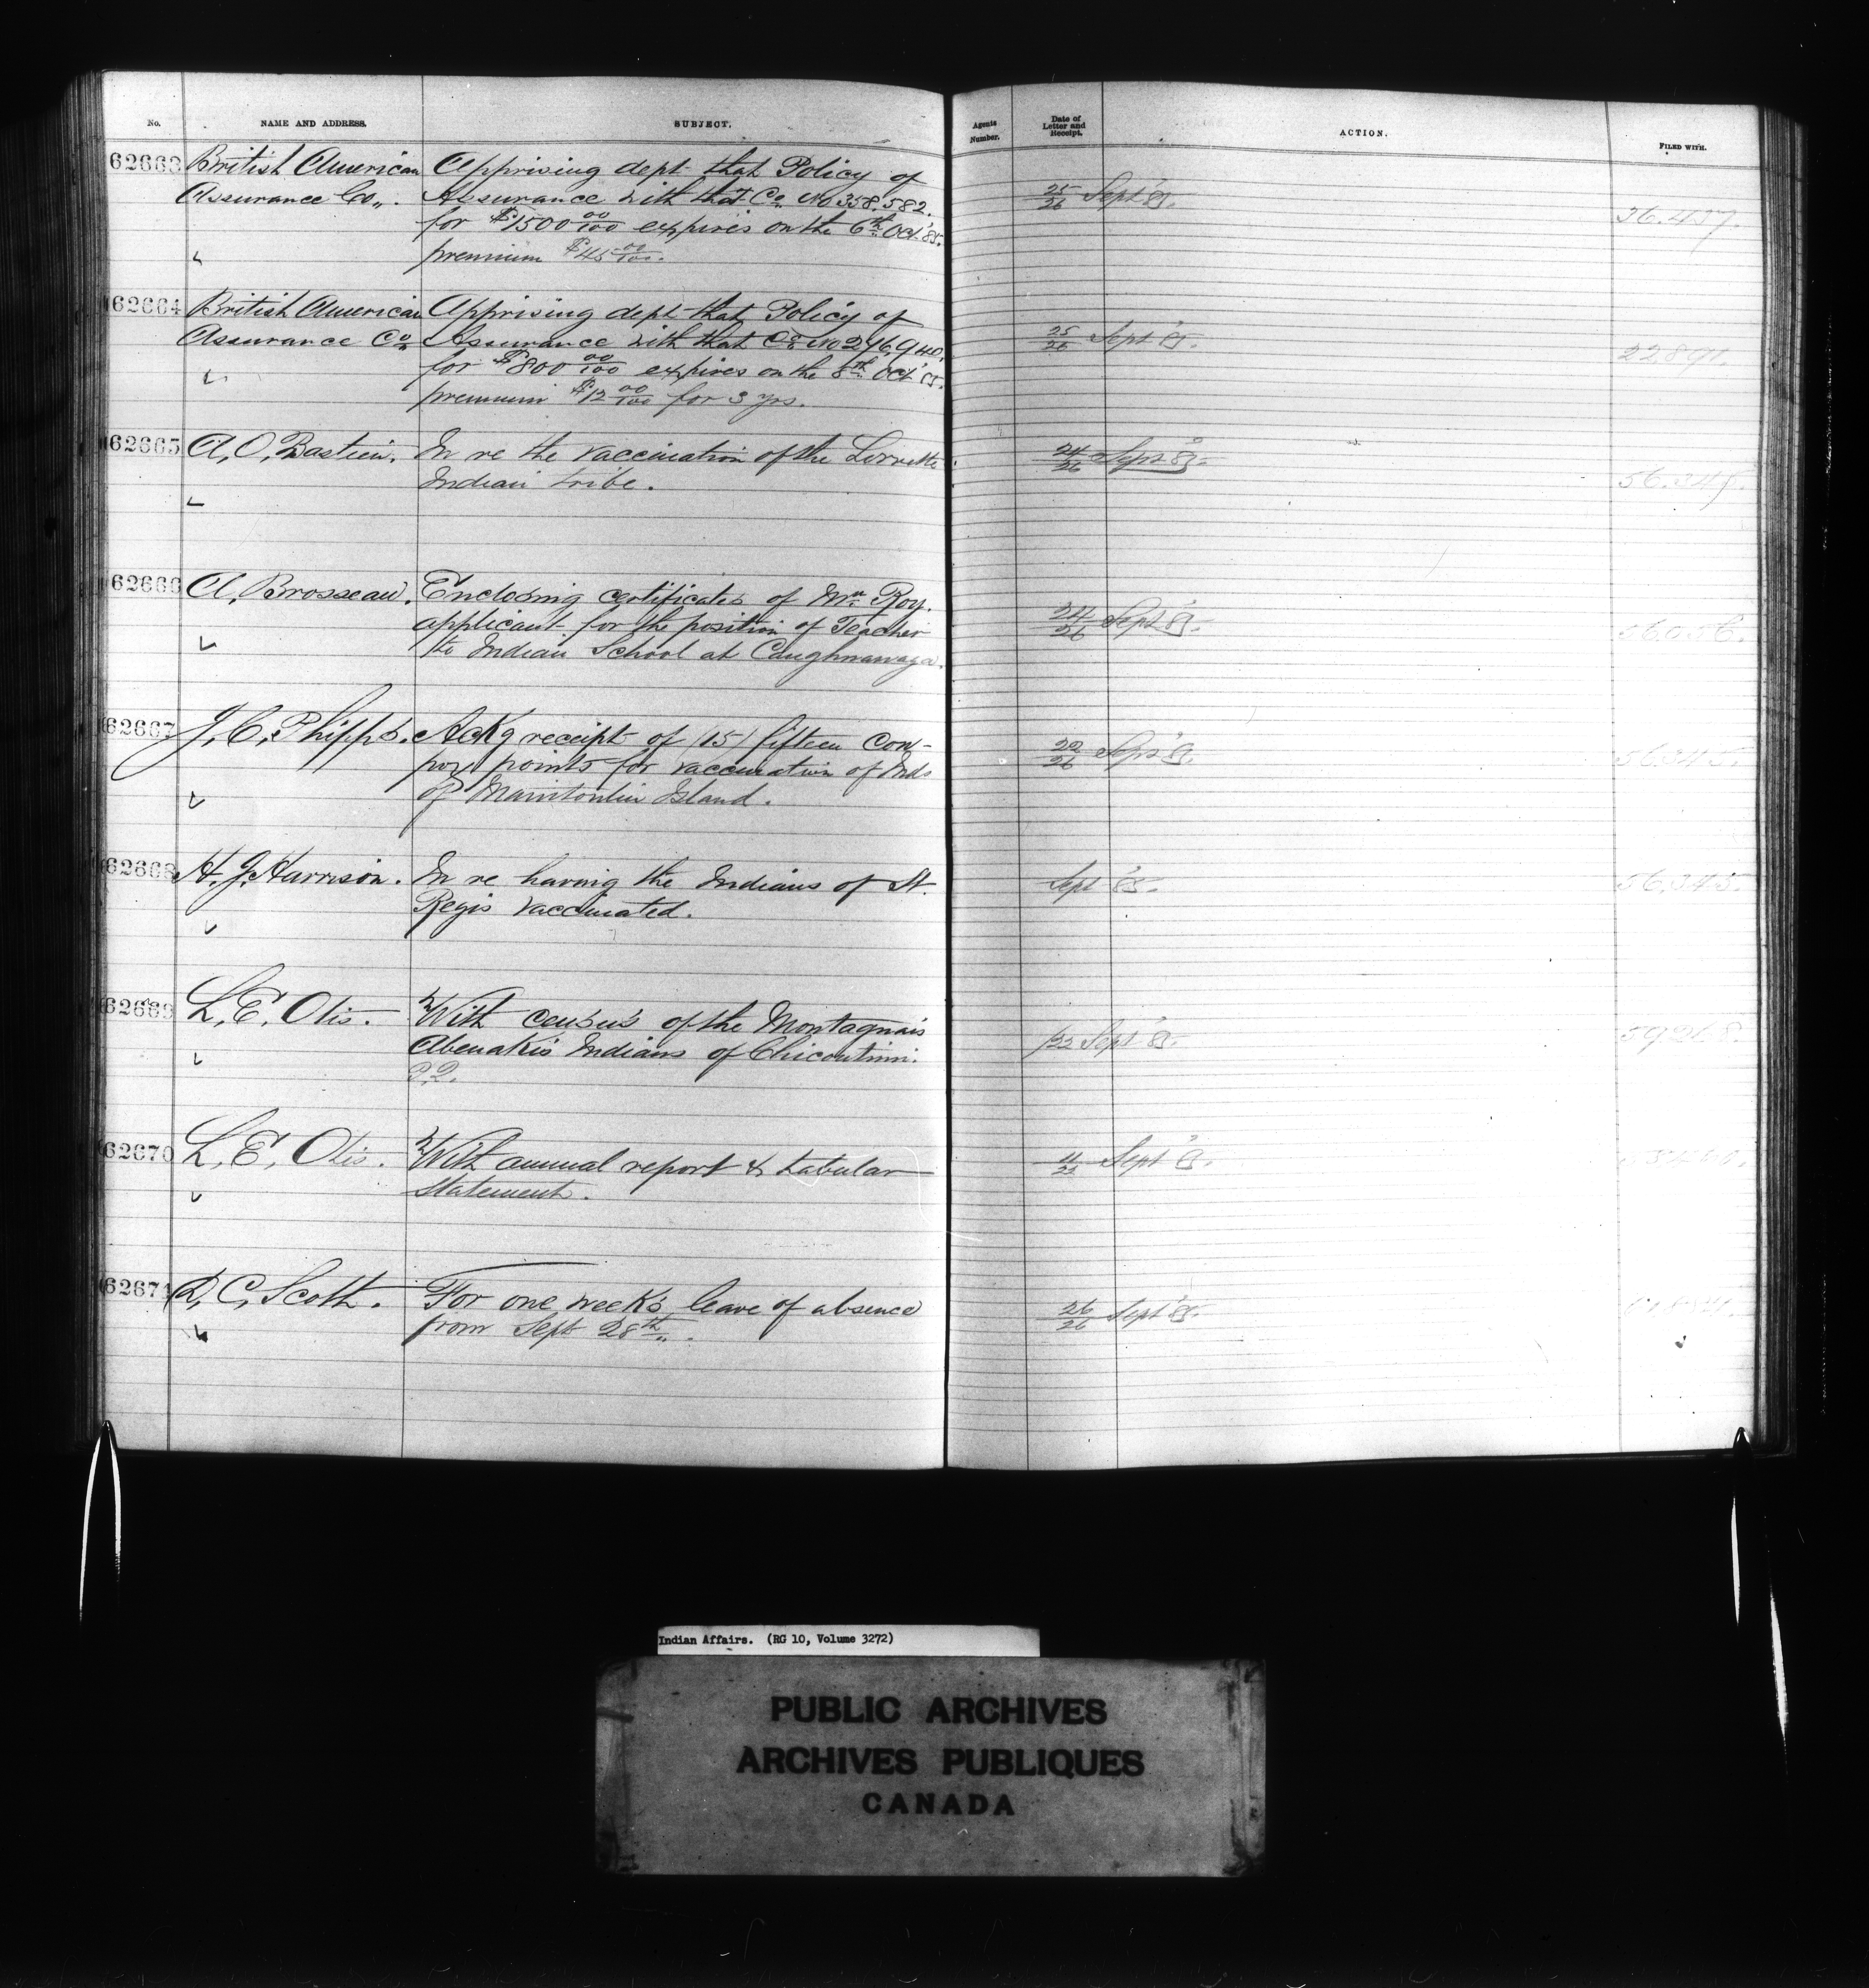 No. NAME AND ADDRESS. SUBJECT. Agents Number. Date of Letter and Receipt. ACTION. FILED WITH.
62663 British American Apprising dept that Policy of
Assurance Co,,. Assurance with that Co No 358.582. 25/26 Sept '85.
for $1500 00/100 expires on the 6th Oct '85. 36.437.
premium $45 00/100.
62664 British American Apprising dept that Policy of
Assurance Co Assurance with that Co No 296,940. 25/26 Sept '85.
for $800 00/100 expires on the 8th Oct '85. 22891.
premium $12 00/100 for 3 yrs.
62665 A, O, Bastien. In re the vaccination of the Lorrette 24/26 Sept '85.
Indian tribe. 56.345.
62666 A, Brosseau. Enclosing certificates of Mr Roy.
applicant for the position of Teacher 24/26 Sept '85. 56056.
to Indian School at Caughnawaga.
62667 J, C, Phipps. Ackg receipt of (15) fifteen Cow-
pox points for vaccination of Inds 22/26 Sept '85. 56345.
of Manitoulin Island.
62668 H. J. Harrison. In re having the Indians of St. Sept '85. 56,345.
Regis vaccinated.
62669 L, E, Otis. With census of the Montagnais
Abenakis Indians of Chicoutimi. /22 Sept '85.
P.Q.
62670 L, E, Otis. With annual report & tabular Sept '85.
Statement.
62671 D, C, Scott. For one week's leave of absence 26/26 Sept '85.
from Sept 28th,,.
Indian Affairs. (RG 10, Volume 3272)
PUBLIC ARCHIVES
ARCHIVES PUBLIQUES
CANADA